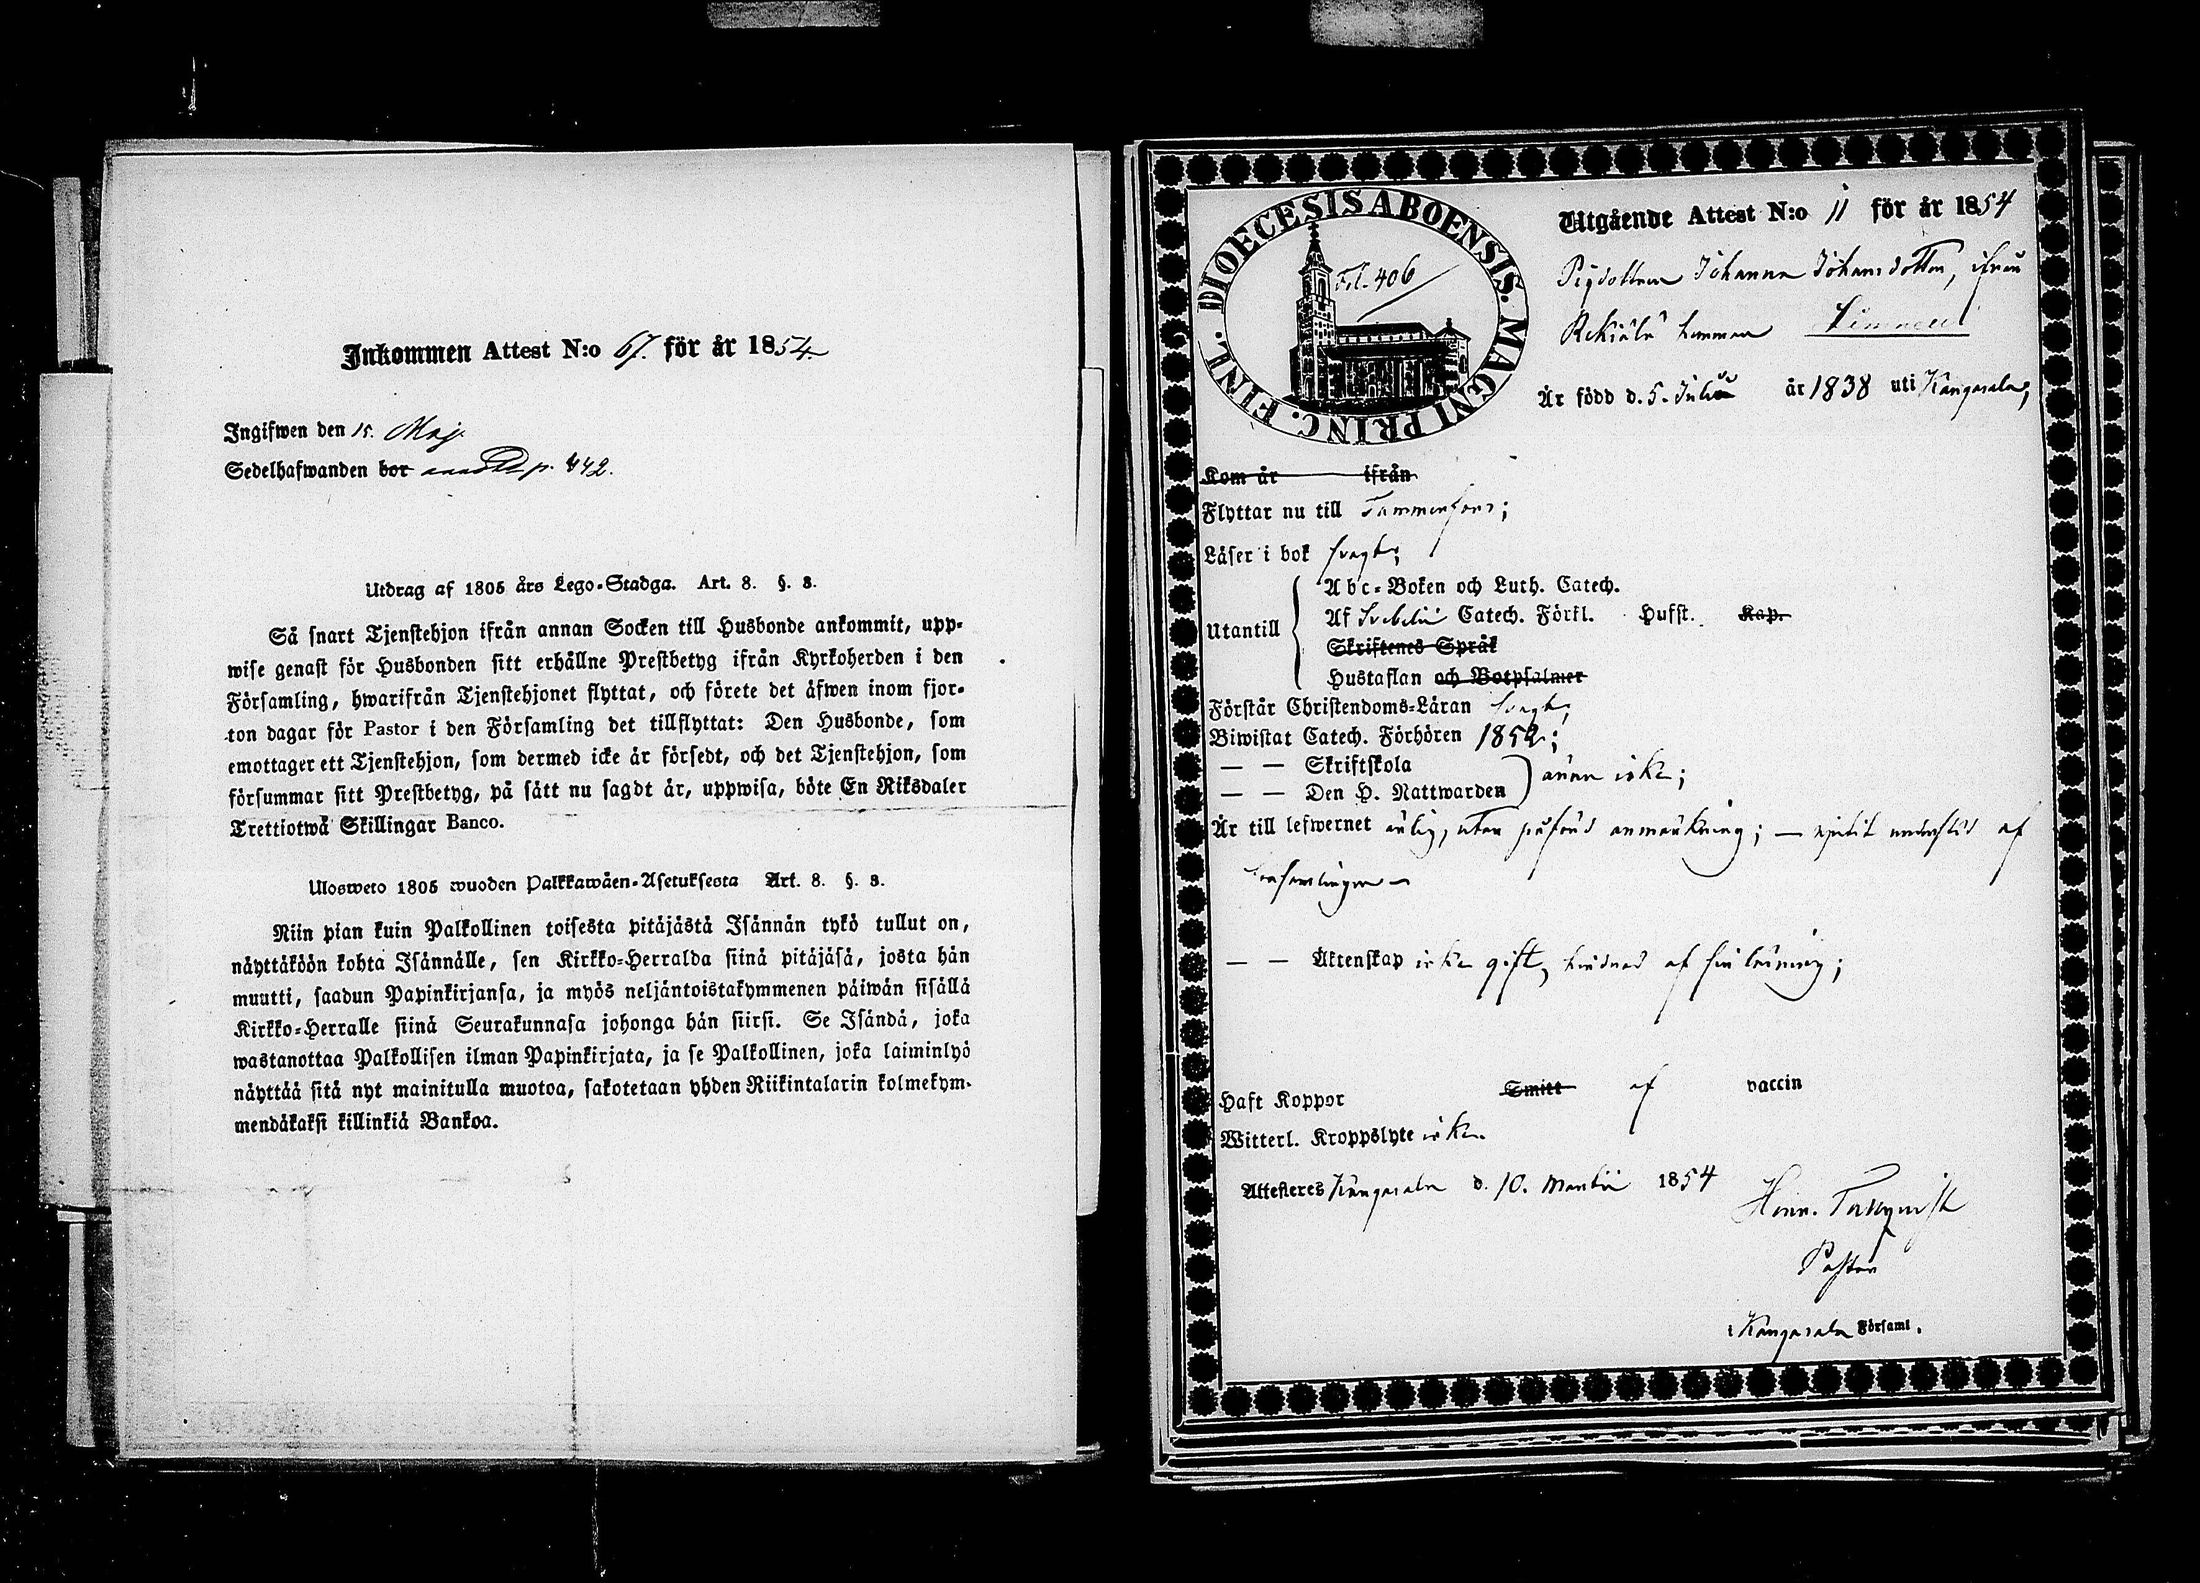 Inkommen Attest N:o 67. för år 1854
Ingifwen den 15. Maj.
Sedelhafwanden bor p. 442.
Utdrag af 1805 års Lego-Stadga. Art. 8. §. 3.
Så snart Tjenstehjon ifrån annan Socken till Husbonde ankommit, upp-
wise genast för Husbonden sitt erhållne Prestbetyg ifrån Kyrkoherden i den
Församling, hwarifrån Tjenstehjonet flyttat, och förete det äfwen inom fjor-
ton dagar för Pastor i den Församling det tillflyttat: Den Husbonde, som
emottager ett Tjenstehjon, som dermed icke är försedt, och det Tjenstehjon, som
försummar sitt Prestbetyg, på sätt nu sagdt är, uppwisa, böte En Riksdaler
Trettiotwå Skillingar Banco.
Ulosweto 1805 wuoden Palkkawäen-Asetuksesta Art. 8. §. 3.
Niin pian kuin Palkollinen toisesta pitäjästä Isännän tykö tullut on,
näyttäköön kohta Isännälle, sen Kirkko-Herralda siinä pitäjäsä, josta hän
muutti, saadun Papinkirjansa, ja myös neljäntoistakymmenen päiwän sisällä
Kirkko-Herralle siinä Seurakunnasa johonga hän siirsi. Se Isändä, joka
wastanottaa Palkollisen ilman Papinkirjata, ja se Palkollinen, joka laiminlyö
näyttää sitä nyt mainitulla muotoa, sakotetaan yhden Riikintalarin kolmekym-
mendäkaksi killinkiä Bankoa.
DIOECESIS ABOENSIS. MAGNI PRINC. FINL.
Fol. 406
Utgående Attest N:o 11 för år 1854
Pigdottren Johanna Johansdotter, ifrån
Rekiälä hemman
Är född d. 5. Julii år 1838 uti Kangasala;
Kom år ifrån
Flyttar nu till Tammerfors;
Läser i bok svagt;
Abc-Boken och Luth. Catech.
Utantill Af Svebelii Catech. Förkl. Hufst. Kap.
Skriftenes Språk
Hustaflan och Botpsalmer
Förstår Christendoms-Läran svagt;
Biwistat Catech. Förhören 1852;
— — Skriftskola
— — Den H. Nattwarden ännu icke;
Är till lefwernet ärlig, utan påförd anmärkning; — njutit understöd af
församlingen —
— — Äktenskap icke gift, hindras af sin läsning;
Haft Koppor Smitt af vaccin
Witterl. Kroppslyte icke.
Attesteres Kangasala d. 10. Martii 1854
Henr.
Pastor
i Kangasala Församl.